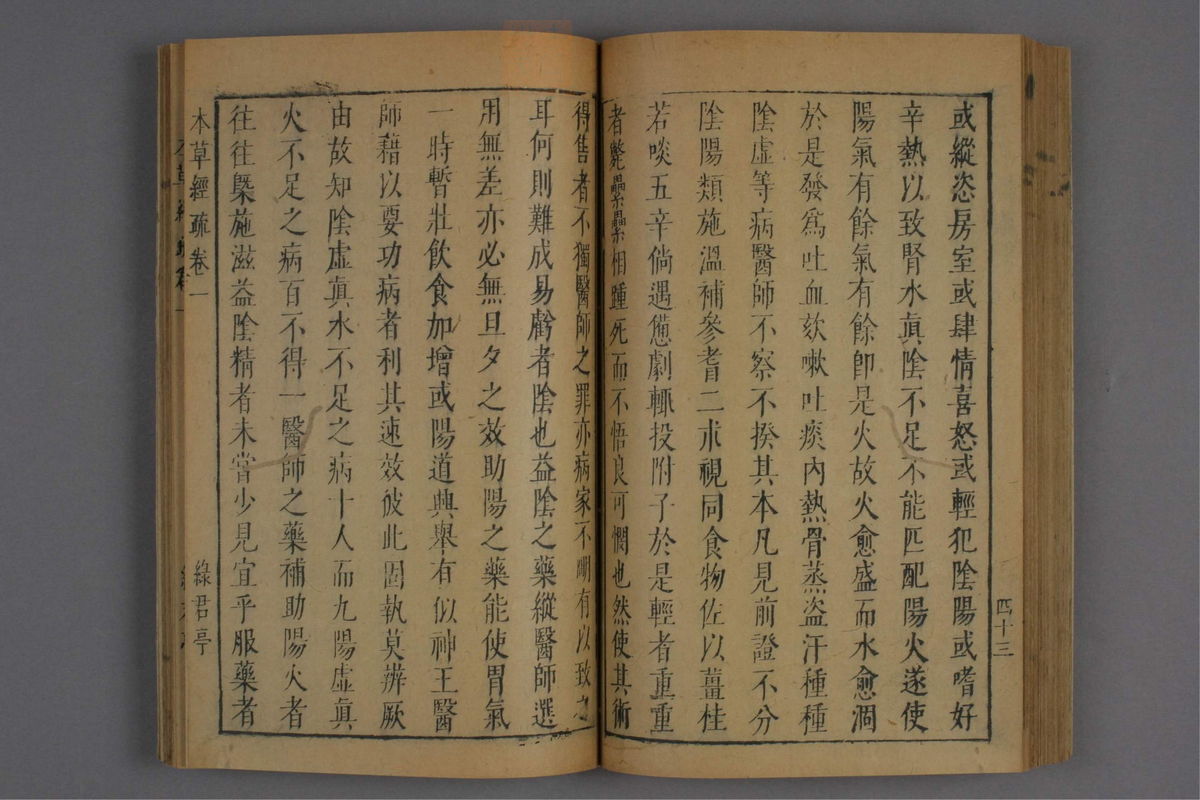 四十三
或縱恣房室或肆情喜怒或輕犯陰陽或嗜好
辛熱以致腎水眞陰不足不能匹配陽火遂使
陽氣有餘氣有餘卽是火故火愈盛而水愈涸
於是發爲吐血欬嗽吐痰內熱骨蒸盗汗種種
陰虛等病醫師不察不揆其本凡見前證不分
陰陽類施溫補參耆二朮視同食物佐以薑桂
若啖五辛倘遇憊劇輒投附子於是輕者重重
者斃纍纍相踵死而不悟良可憫也然使其術
得售者不獨醫師之罪亦病家不明有以致之
耳何則難成易虧者陰也益陰之藥縱醫師選
用無差亦必無旦夕之效助陽之藥能使胃氣
一時暫壯飲食加增或陽道興舉有似神王醫
師藉以要功病者利其速效彼此固執莫辨厥
由故知陰虛眞水不足之病十人而九陽虛眞
火不足之病百不得一醫師之藥補助陽火者
往往槩施滋益陰精者未嘗少見宜乎服藥者
本草經疏卷一
綠君亭